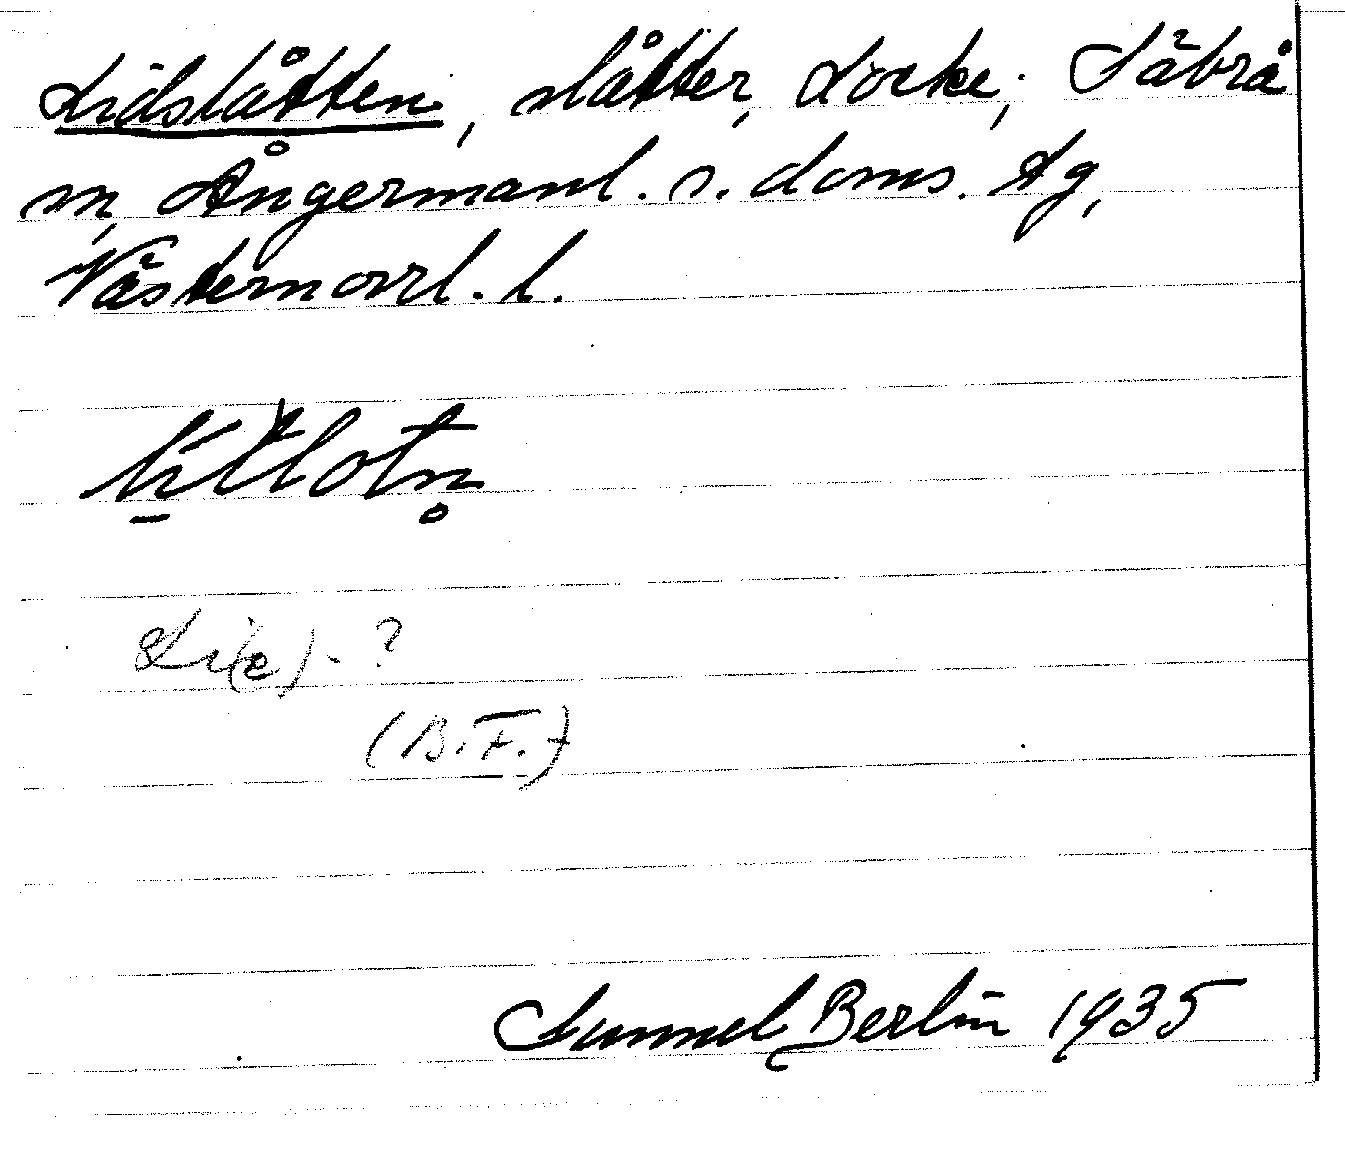 Lidslåtten, slåtter, Locke; Säbrå
sn, Ångermanl. s. doms. Lg,
Västernorrl. l.
Li(e)- ?
(B.F.)
Samuel Berlin 1935